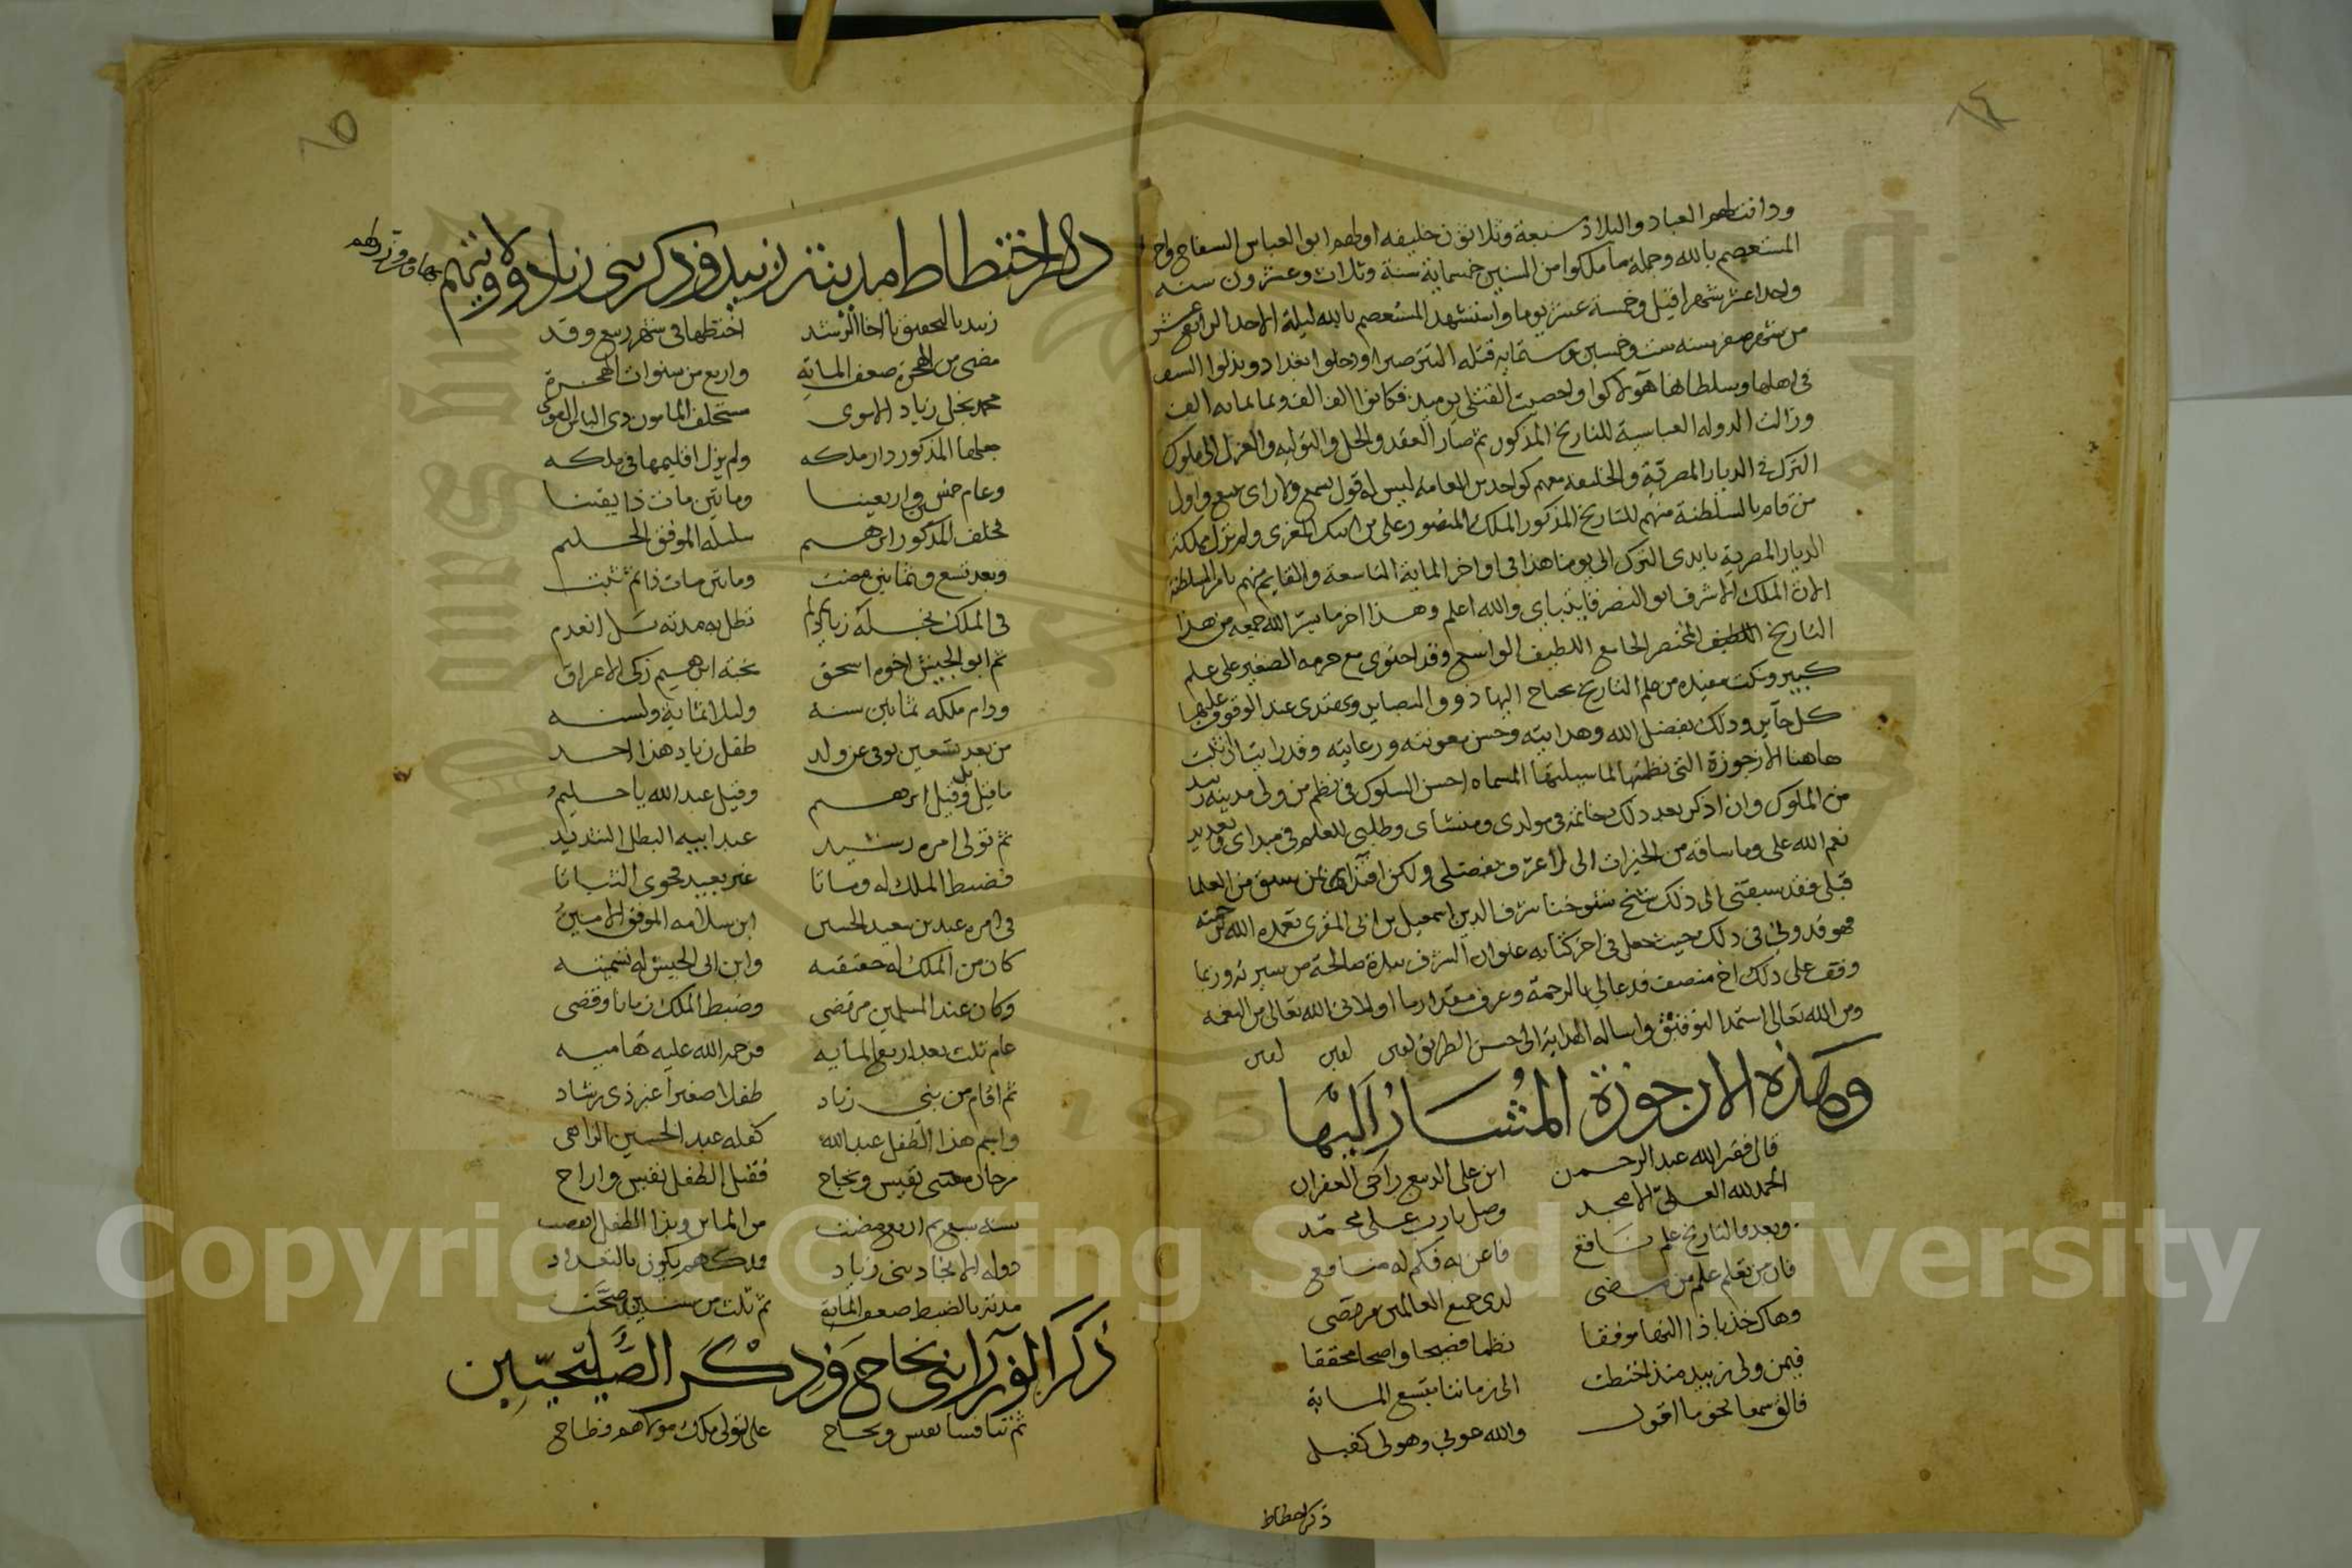 ودانت لهم العباد والبلاد سبعة وثلاثون خليفه اولهم ابو العباس السفاح واخر
المستعصم بالله وجملة ما ملكوا من السنين خمسماية سنة وثلاث وعشرون سنه
واحدا عشر شهرا وقيل وخمسة عشر يوما واستشهد المستعصم بالله ليلة الاحد الرابع عشر
من شهر صفر سنه ست وخمسين وستمايه قتله التتر صبرا ودخلوا بغداد وبذلوا السيف
في اهلها وسلطانها هولاكوا واحصيت القتلى يوميذ فكانوا الف الف وثمانمايه الف
وزالت الدوله العباسية للتاريخ المذكور ثم صار العقد والحل والتوليه والعزل الى ملوك
الترك في الديار المصرية والخليفه معهم كواحد من العامه ليس له قول يسمع ولا راى يتبع واول
من قام بالسلطنة منهم للتاريخ المذكور الملك المنصور على بن ايبك المعزى ولم تزل مملكة
الديار المصرية بايدى الترك الى يومنا هذا فى اواخر الماية التاسعة والقايم منهم بامر السلطنة
الان الملك الاشرف ابو النصر قايتباى والله اعلم وهذا اخر ما يسر الله جمعه من هذا
التاريخ اللطيف المختصر الجامع اللطيف الواسع وقد احتوى مع جرمه الصغير على علم
كبير ونكت مفيده من علم التاريخ يحتاج اليها ذوو البصاير ويهتدى عند الوقوف عليها
كل حاير وذلك بفضل الله وهدايته وحسن معونته ورعايته وقد رايت ان اثبت
هاهنا الارجوزة التى نظمتها لما سيليتها المسماه احسن السلوك فى نظم من ولى مدينه زبيد
من الملوك وان اذكر بعد ذلك خاتمة فى مولدى ومنشاى وطلبى للعلم فى مبداى وتعديد
نعم الله على وما ساقه من الخيرات الى لا عن تفضلى ولكن اقتداء بمن سبق من العلما
قبلى فقد سبقنى الى ذلك شيخ شيوخنا شرف الدين اسمعيل بن ابى المقرى تغمده الله برحمته
فهو قدوتي فى ذلك حيث جعل فى اخر كتابه عنوان الشرف نبذة صالحة من سيرته وربما
وقف على ذلك اخ منصف فدعا لي بالرحمة وعرف مقدار ما اولانى الله تعالى من النعمه
ومن الله تعالى استمد التوفيق واساله الهداية الى حسن الطريق امين امين امين
وهذه الارجوزة المشار اليها
قال فقير الله عبد الرحمن ابن على الديبع راجى الغفران
الحمد لله العلى الامجد وصل يا رب على محمد
وبعد فالتاريخ علم نافع فاعن به فكم له منافع
فان من تعلم علم من مضى لدى جميع العالمين مرتضى
وهاك خذ يا ذا النها موفقا نظما فصيحا واضحا محققا
فيمن ولى زبيد منذ اختطت الى زماننا بتسع الماية
فالق سمعا نحو ما اقول والله عوني وهو لى كفيل
ذكر اختطاط
ذكر اختطاط مدينة زبيد وذكر بنى زياد وولايتهم
زبيد بالتحقيق يا اخا الرشد اختطها فى شهر ربيع وقد
مضى من الهجرة ضعف الماية واربع من سنوات الهجرة
محمد نجل زياد الاموى مستخلف المامون ذى الباس القوى
جعلها المذكور دار ملكه ولم يزل اقليمها فى ملكه
وعام خمس واربعينا وماتين مات ذا يقينا
فخلف المذكور ابرهيم سليله الموفق الحليم
وبعد تسع وثمانين مضت وماتين مات ذا ثم ثبت
فى الملك نجله زياد
ثم ابو الجيش اخوه اسحق نجله ابرهيم زكى الاعراق
ودام ملكه ثمانين سنه
من بعد تسعين توفى عن ولد طفل زياد هذا احد
ما قيل بل وقيل ابرهيم وقيل عبد الله يا حليم
ثم تولى امره رشيد عبد ابيه البطل الشديد
فضبط الملك له وماتا غير بعيد
فى امره عبد بن سعيد الحسين ابن سلامه الموفق الامين
كان من الملك له حقيقه وابن ابى الجيش له
وكان عند المسلمين مرتضى وضبط الملك زمانا وقضى
عام ثلث بعد اربع المايه فرحمة الله عليه هاميه
ثم اقام من بنى زياد طفلا صغيرا غير ذى رشاد
واسم هذا الطفل عبد الله كفله عبد الحسين الزاهى
مرجان نفيس ونجاح فقتل الطفل نفيس واراح
سنه سبع ثم اربع مضت من الماين وبذا الطفل انقضت
دولة الامجاد بنى زياد وملكهم يكون بالتعداد
مدته بالضبط ضعف الماية ثم ثلث من سنين صحت
ذكر الوزراء بنى نجاح وذكر الصليحيين
ثم تنافسا نفيس ونجاح على تولى ملك مولاهم